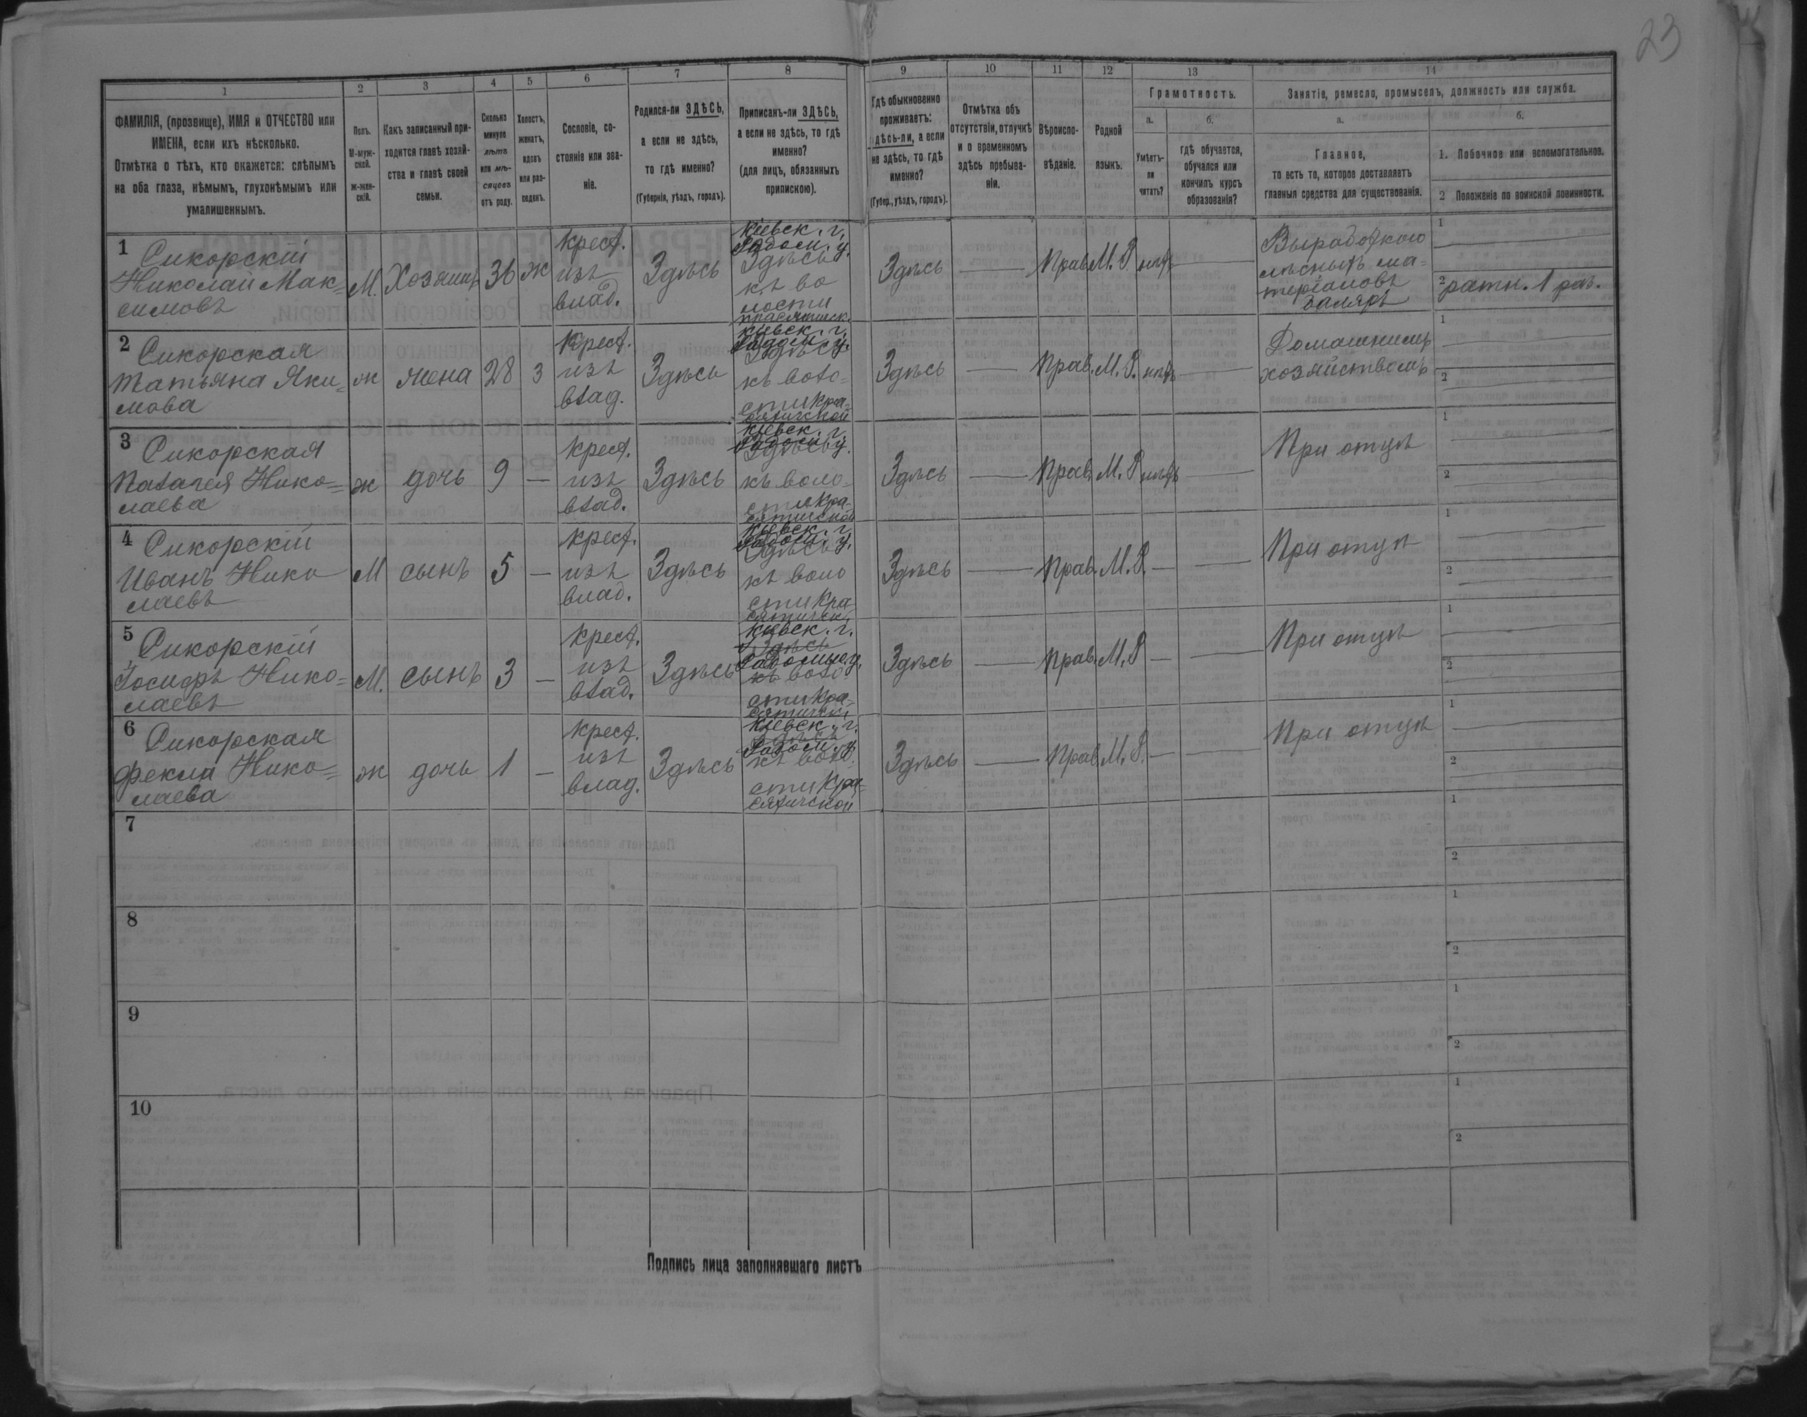 23
1
2
3
4
5
6
7
8
9
10
11
12
13
14
ФАМИЛІЯ, (прозвище), ИМЯ и ОТЧЕСТВО или
ИМЕНА, если ихъ нѣсколько.
Отмѣтка о тѣхъ, кто окажется: слѣпымъ
на оба глаза, нѣмымъ, глухонѣмымъ или
умалишеннымъ.
Полъ.
М-муж-
ской.
ж-жен-
скій.
Какъ записанный при-
ходится главѣ хозяй-
ства и главѣ своей
семьи.
Сколько
минуло
лѣтъ
или мѣ-
сяцевъ
отъ роду.
Холостъ,
женатъ,
вдовъ
или раз-
веденъ.
Сословіе, со-
стояніе или зва-
ніе.
Родился-ли ЗДѢСЬ,
а если не здѣсь,
то гдѣ именно?
(Губернія, уѣздъ, городъ).
Приписанъ-ли ЗДѢСЬ,
а если не здѣсь, то гдѣ
именно?
(для лицъ, обязанныхъ
припискою).
Гдѣ обыкновенно
проживаетъ:
здѣсь-ли, а если
не здѣсь, то гдѣ
именно?
(Губер., уѣздъ, городъ).
Отмѣтка объ
отсутствіи, отлучкѣ
и о временномъ
здѣсь пребыва-
ніи.
Вѣроиспо-
вѣданіе.
Родной
языкъ.
Грамотность.
а.
б.
Умѣетъ-
ли
читать?
гдѣ обучается,
обучался или
кончилъ курсъ
образованія?
Занятіе, ремесло, промыселъ, должность или служба.
а.
б.
Главное,
то есть то, которое доставляетъ
главныя средства для существованія.
1. Побочное или вспомогательное.
2 Положеніе по воинской повинности.
1 Сикорскій
Николай Мак-
симовъ
М.
Хозяинъ
36
ж
крест.
изъ
влад.
Здѣсь
Кіевск. г.
Радом. у.
Здѣсь
къ во
лости
Здѣсь
—
Прав.
М. Р.
нѣтъ
—
Выработкою
лѣсныхъ ма-
теріаловъ
1
2 ратн. 1 раз.
2 Сикорская
Татьяна Яки-
мова
ж
жена
28
з
крест.
изъ
влад.
Здѣсь
Кіевск. г.
Радом. у.
Здѣсь
къ воло-
сти Кра-
сятичской
Здѣсь
—
Прав.
М. Р.
нѣтъ
—
Домашнимъ
хозяйствомъ
1
2
3 Сикорская
Палагея Нико=
лаева
ж
дочь
9
—
крест.
изъ
влад.
Здѣсь
Кіевск. г.
Радом. у.
Здѣсь
къ воло-
сти Кра-
сятичской
Здѣсь
—
Прав.
М. Р.
нѣтъ
—
При отцѣ
1
2
4 Сикорскій
Иванъ Нико
лаевъ
М
сынъ
5
—
крест.
изъ
влад.
Здѣсь
Кіевск. г.
Радом. у.
Здѣсь
къ воло
сти Кра
Здѣсь
—
Прав.
М. Р.
—
—
При отцѣ
1
2
5 Сикорскій
Іосифъ Нико=
лаевъ
М.
сынъ
3
—
крест.
изъ
влад.
Здѣсь
Кіевск. г.
Здѣсь
къ воло
сти Кра-
Здѣсь
—
Прав.
М. Р
—
—
При отцѣ
1
2
6 Сикорская
Фекла Нико=
лаева
ж
дочь
1
—
крест.
изъ
влад.
Здѣсь
Кіевск. г.
Здѣсь
Радом. у.
къ воло
сти Кра=
сятичской
Здѣсь
—
Прав.
М. Р.
—
—
При отцѣ
1
2
7
1
2
8
1
2
9
1
2
10
1
2
Подпись лица заполнявшаго листъ